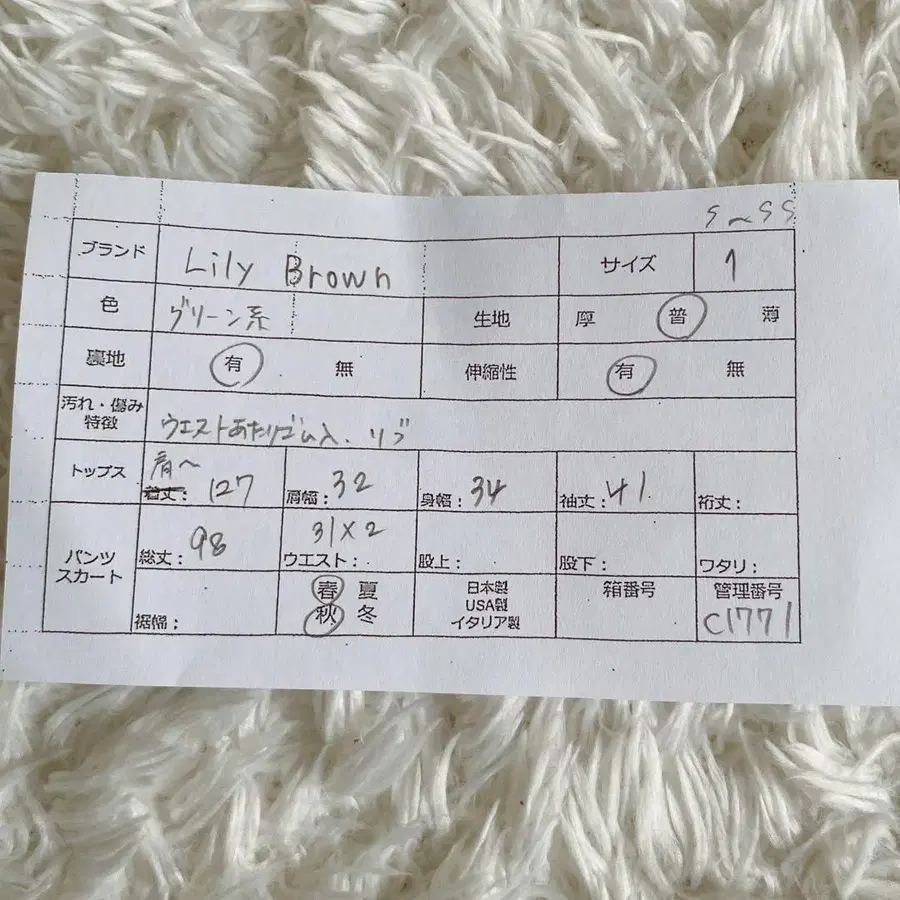 S~SS
ブランド Lily Brown サイズ 1
色 グリーン系 生地 厚 普 薄
裏地 有 無 伸縮性 有 無
汚れ・傷み
特徴 ウエストあたりゴム入、リブ
トップス 肩〜
着丈: 127 肩幅: 32 身幅: 34 袖丈: 41 裄丈:
パンツ
スカート 総丈: 98 ウエスト: 31×2 股上: 股下: ワタリ:
裾幅: 春 夏 秋 冬 日本製
USA製
イタリア製 箱番号 管理番号
C1771